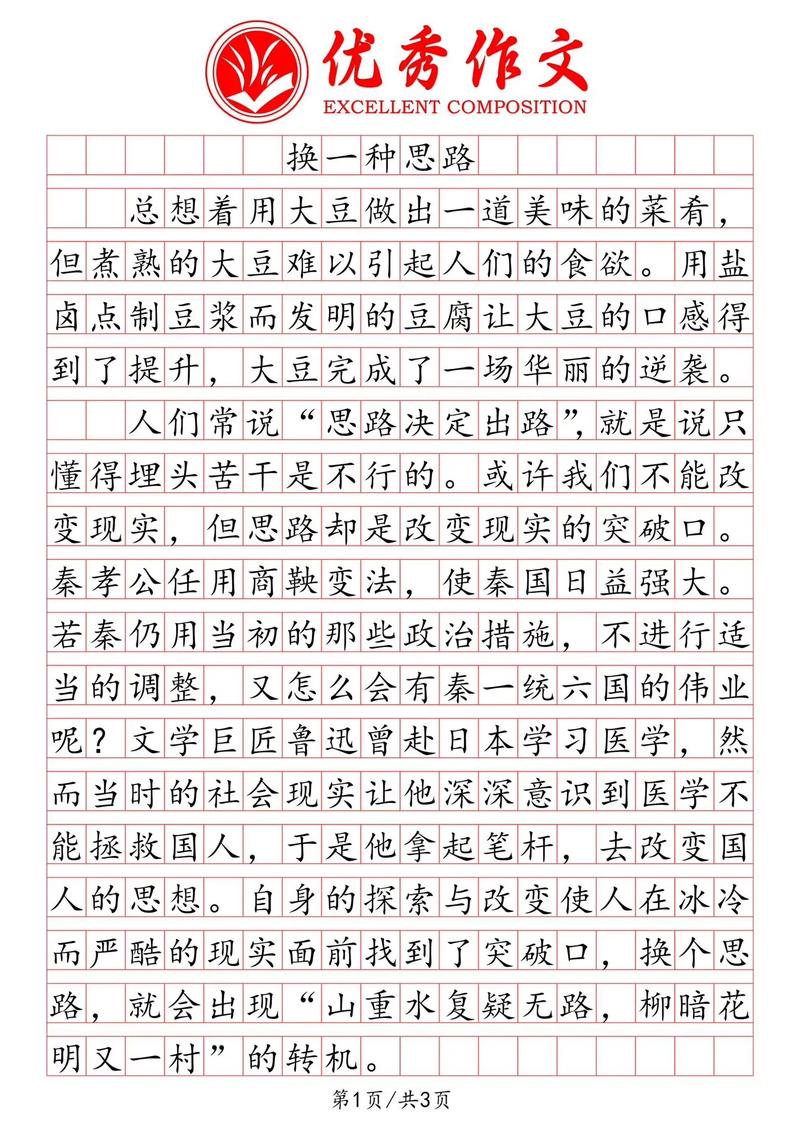 优秀作文
EXCELLENT COMPOSITION
换一种思路
总想着用大豆做出一道美味的菜肴，
但煮熟的大豆难以引起人们的食欲。用盐
卤点制豆浆而发明的豆腐让大豆的口感得
到了提升，大豆完成了一场华丽的逆袭。
人们常说“思路决定出路”，就是说只
懂得埋头苦干是不行的。或许我们不能改
变现实，但思路却是改变现实的突破口。
秦孝公任用商鞅变法，使秦国日益强大。
若秦仍用当初的那些政治措施，不进行适
当的调整，又怎么会有秦一统六国的伟业
呢？文学巨匠鲁迅曾赴日本学习医学，然
而当时的社会现实让他深深意识到医学不
能拯救国人，于是他拿起笔杆，去改变国
人的思想。自身的探索与改变使人在冰冷
而严酷的现实面前找到了突破口，换个思
路，就会出现“山重水复疑无路，柳暗花
明又一村”的转机。
第1页/共3页